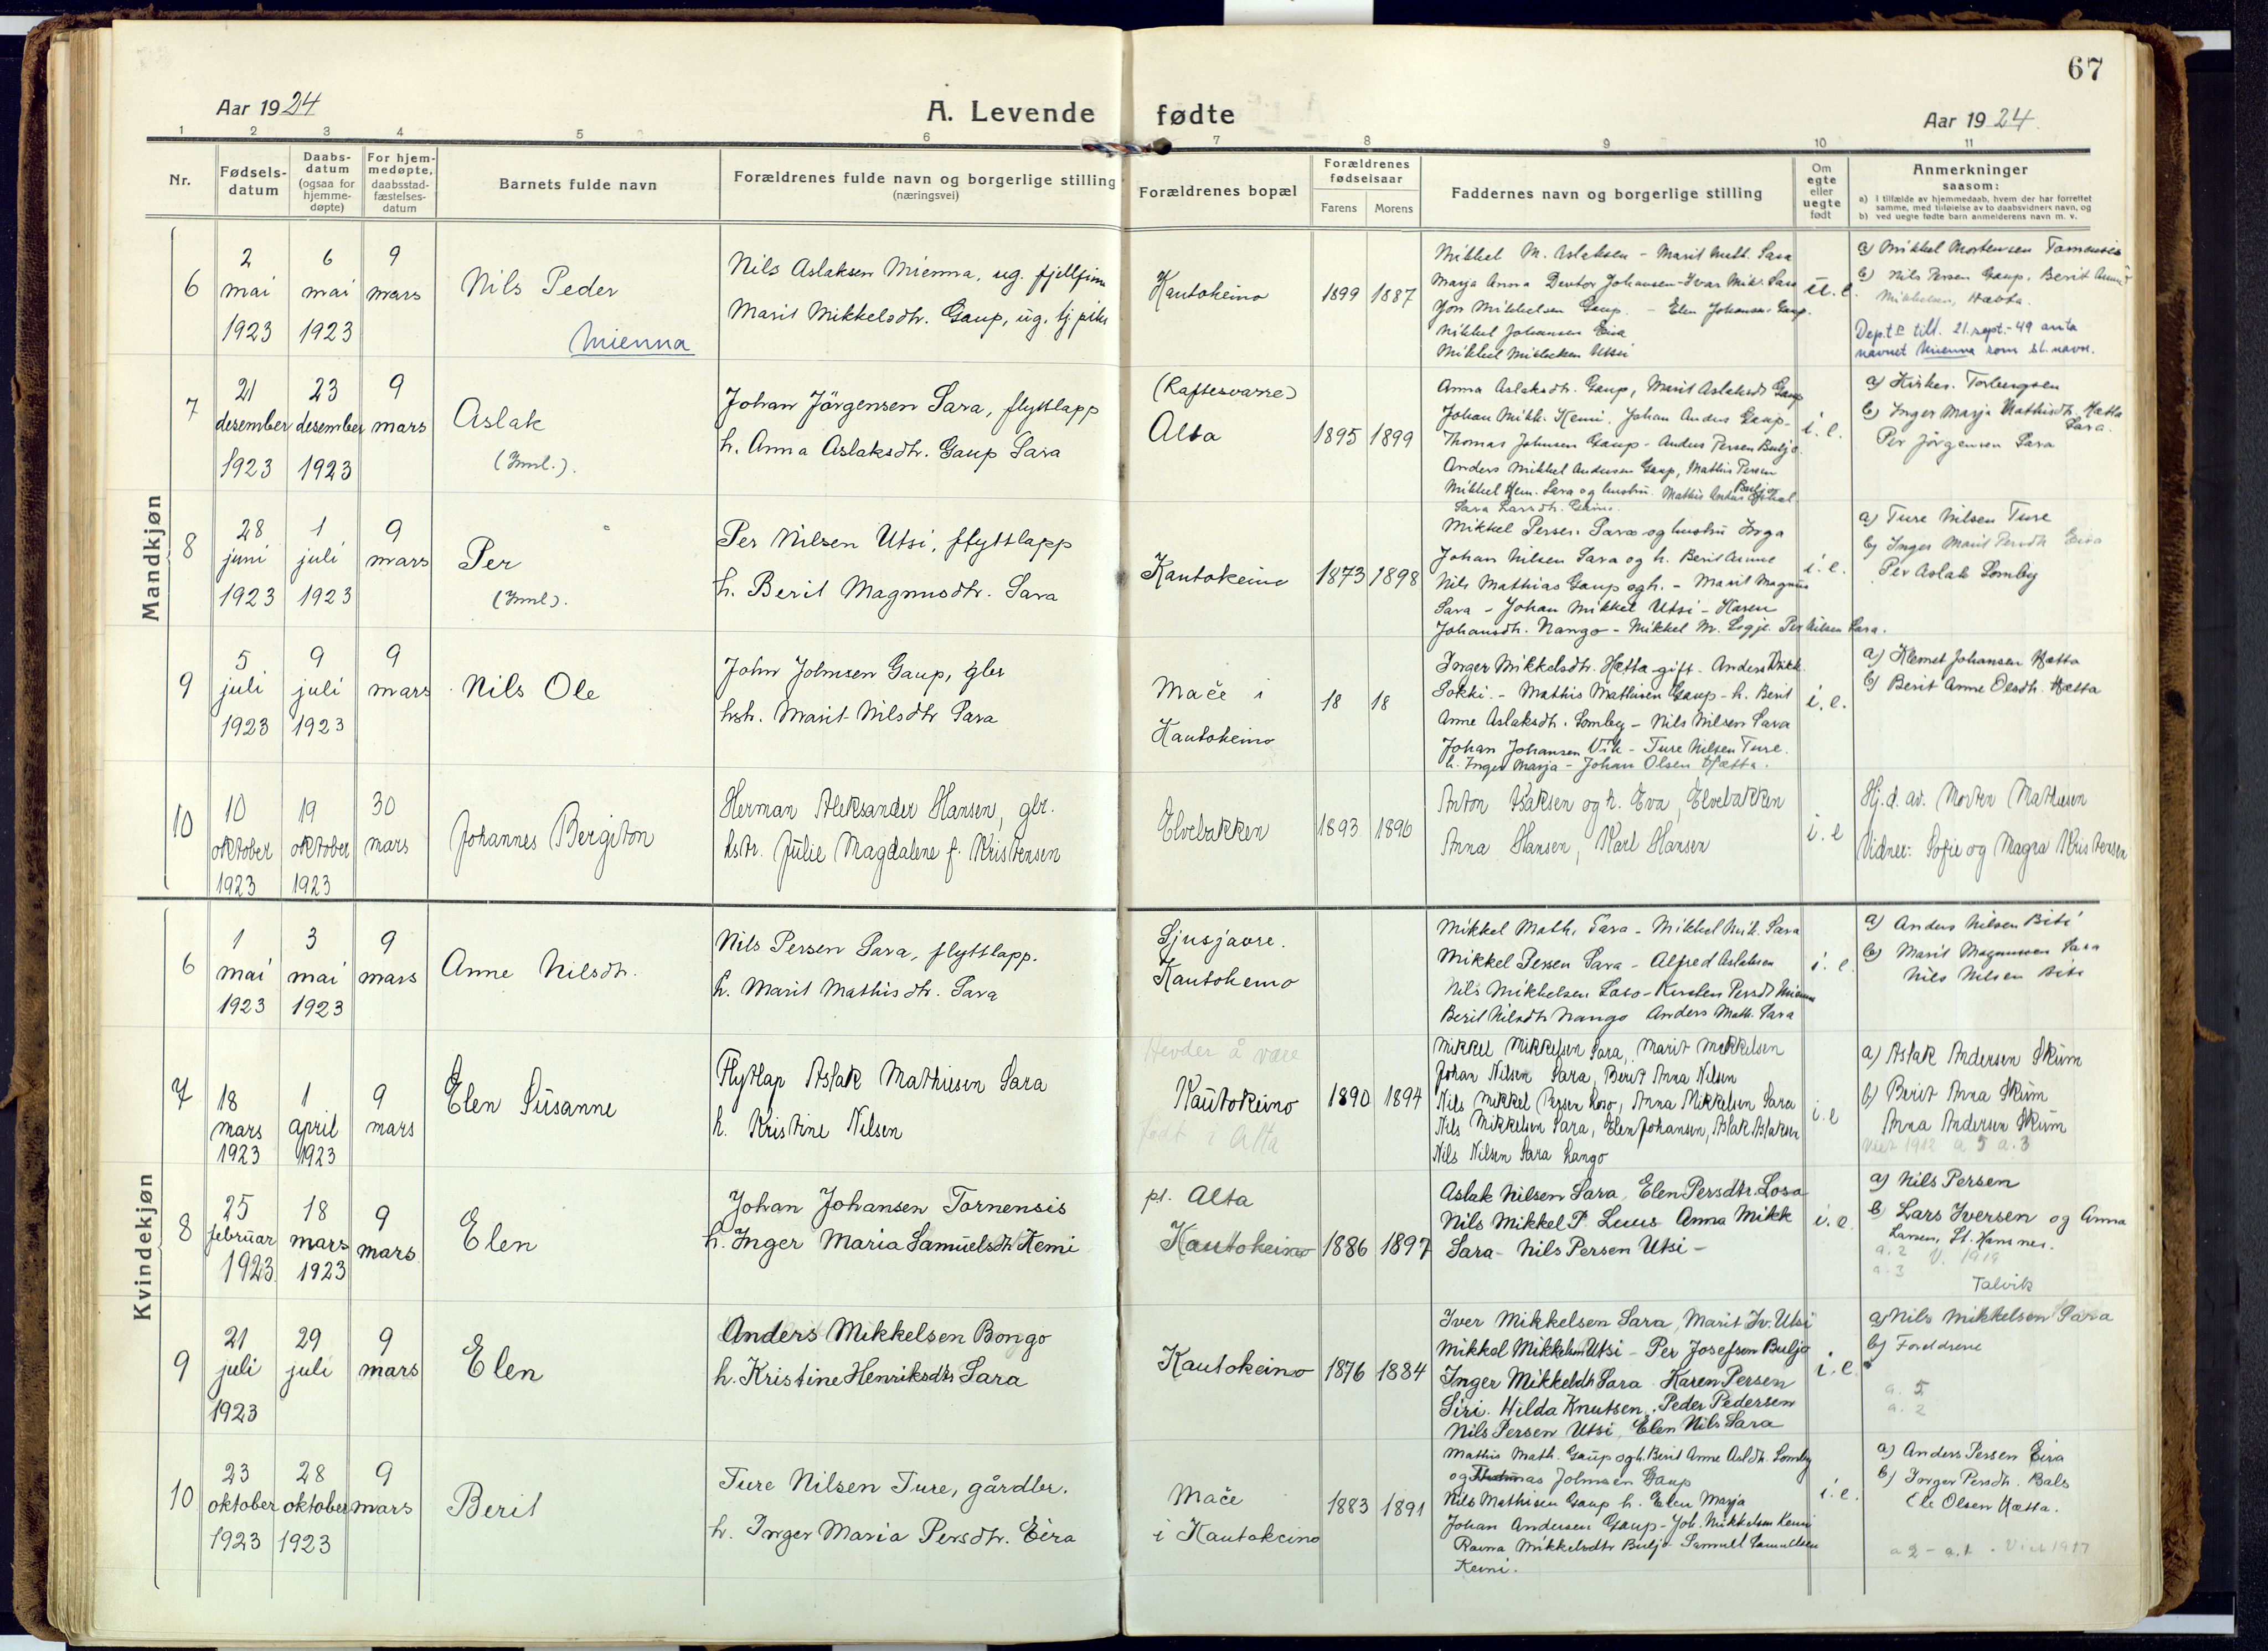 67
Aar 1924
A. Levende fødte
Aar 1924.
1 2 3 4 5 6 7 8 9 10 11
Nr.
Fødsels-
datum
Daabs-
datum
(ogsaa for
hjemme-
døpte)
For hjem-
medøpte,
daabsstad-
fæstelses-
datum
Barnets fulde navn
Forældrenes fulde navn og borgerlige stilling
(næringsvei)
Forældrenes bopæl
Forældrenes
fødselsaar
Farens Morens
Faddernes navn og borgerlige stilling
Om
egte
eller
uegte
født
Anmerkninger
saasom:
a) i tilfælde av hjemmedaab, hvem der har forrettet
samme, med tilføielse av to daabsvidners navn, og
b) ved uegte fødte barn anmelderens navn m. v.
Mandkjøn
6
2 mai 1923
6 mai 1923
9 mars
Nils Peder
Mienna
Nils Aslaksen Mienna, ug. fjellfinn
Marit Mikkelsdtr. Gaup, ug. tj. pike
Kautokeino
1899 1887
Mikkel M. Aslaksen - Marit Sara
Marja Anna Johansen - Ivar Mik. Sara
Jon Mikkelsen Gaup. - Elen Johansen Gaup.
Mikkel Johansen Eira
Mikkel Mikkelsen Utsi
u. e.
a) Mikkel Mortensen
b) Nils Persen Gaup. Berit
Mikkelsen, Hætta.
Dept. till. 21. sept.-49 anta
navnet Mienna som sl. navn.
7
21 desember 1923
23 desember 1923
9 mars
Aslak
(Innl.).
Johan Jörgensen Sara, flyttlapp
h. Anna Aslaksdtr. Gaup Sara
(Raftesvarre)
Alta
1895 1899
Anna Aslaksdtr. Gaup, Marit Aslaksdt Gaup
Johan Mikk. Kemi. Johan Anders Gaup-
Thomas Johnsen Gaup - Anders Persen Buljo.
Anders Mikkel Andersen Gaup, Mathis Persen
Buljo
Mikkel Hen. Sara og hustru. Mathis
Sara Larsdtr.
i. e.
a) Kirkes. Torbergsen
b) Inger Marja Mathisdtr. Hætta
Sara.
Per Jörgensen Sara
8
28 juni 1923
1 juli 1923
9 mars
Per
(Innl).
Per Nilsen Utsi, flyttlapp
h. Berit Magnusdtr. Sara
Kautokeino
1873 1898
Mikkel Persen Sara og hustru Inga
Johan Nilsen Sara og h. Berit Anne
Nils Mathias Gaup og h. - Marit Magnus
Sara - Johan Mikkel Utsi - Karen
Johansdtr. Nango - Mikkel M. Logje. Per Nilsen Sara.
i. e.
a) Ture Nilsen Ture
b) Inger Marit Persdtr Eira
Per Aslak Somby
9
5 juli 1923
9 juli 1923
9 mars
Nils Ole
John Johnsen Gaup, gbr
hstr. Marit Nilsdtr Sara
Mače i
Kautokeino
18 18
Inger Mikkelsdtr. Hætta-gift. Anders Mikk.
Sokki. - Mathis Mathisen Gaup - h. Berit
Anne Aslaksdtr. Somby - Nils Nilsen Sara
Johan Johansen Vik - Ture Nilsen Ture.
h. Inger Marja - Johan Olsen Hætta.
i. e.
a) Klemet Johansen Hætta
b) Berit Anne Olsdtr. Hætta
10
10 oktober 1923
19 oktober 1923
30 mars
Johannes Bergiton
Herman Aleksander Hansen, gbr.
hstr. Julie Magdalene f. Kristensen
Elvebakken
1893 1896
Anton Isaksen og h. Eva, Elvebakken
Anna Hansen, Karl Hansen
i. e
Hj. d. av. Morten Mathisen
Vidner: Sofie og Magna Kristensen
Kvindekjøn
6
1 mai 1923
3 mai 1923
9 mars
Anne Nilsdtr.
Nils Persen Sara, flyttlapp.
h. Marit Mathisdtr. Sara
Sjusjavre.
Kautokeino
Mikkel Math. Sara - Mikkel Mik. Sara
Mikkel Persen Sara - Alfred Aslaksen
Nils Mikkelsen - Kirsten Persdt
Berit Nilsdtr Nango Anders Math. Sara
i. e.
a) Anders Nilsen Biti
b) Marit Magnussen Sara
Nils Nilsen Biti
7
18 mars 1923
1 april 1923
9 mars
Elen Susanne
Flytlap Aslak Mathisen Sara
h. Kristine Nilsen
Hevder å være
Kautokeino
født i Alta
1890 1894
Mikkel Mikkelsen Sara, Marit Mikkelsen
Johan Nilsen Sara, Berit Anna Nilsen
Nils Mikkel Persen Loso, Anna Mikkelsen Sara
Nils Mikkelsen Sara, Elen Johansen, Aslak Aslaksen
Nils Nilsen Sara Lango
i. e
a) Aslak Andersen Skum
b) Berit Anna Skum
Anna Andersen Skum
1912 a 5 a. 3
8
25 februar 1923
18 mars 1923
9 mars
Elen
Johan Johansen Tornensis
h. Inger Maria Samuelsdtr Kemi
pt. Alta
Kautokeino
1886 1897
Aslak Nilsen Sara, Elen Persdtr. Losa
Nils Mikkel P. Luus Anna Mikk
Sara - Nils Persen Utsi -
i. e.
a) Nils Persen
b) Lars Iversen og Anna
Larsen, St. Hamnes.
a. 2 V. 1919
a. 3
Talvik
9
21 juli 1923
29 juli
9 mars
Elen
Anders Mikkelsen Bongo
h. Kristine Henriksdtr Sara
Kautokeino
1876 1884
Iver Mikkelsen Sara, Marit Iv. Utsi
Mikkel Mikkelsen Utsi - Per Josefsen Buljo
Inger Mikkeldtr Sara Karen Persen
Siri. Hilda Knutsen. Peder Pedersen
Nils Persen Utsi, Elen Nils Sara
i. e.
a) Nils Mikkelsen Sara
b) Foreldrene
a. 5
a. 2
10
23 oktober 1923
28 oktober 1923
9 mars
Berit
Ture Nilsen Ture, gårdbr.
h. Inger Maria Persdtr. Eira
Mače
i Kautokeino
1883 1891
Mathis Math. Gaup og h. Berit Anne Asl.dtr. Somby
og Thomas Johnsen Gaup
Nils Mathisen Gaup h. Elen Marja
Johan Andersen Gaup - Joh. Mikkelsen Kemi
Ravna Mikkelsdtr Buljo - Samuel Samuelsen
Kemi.
i. e.
a) Anders Persen Eira
b) Inger Persdtr. Bals
Ole Olsen Hætta.
a 2 - a. 1 . 1917